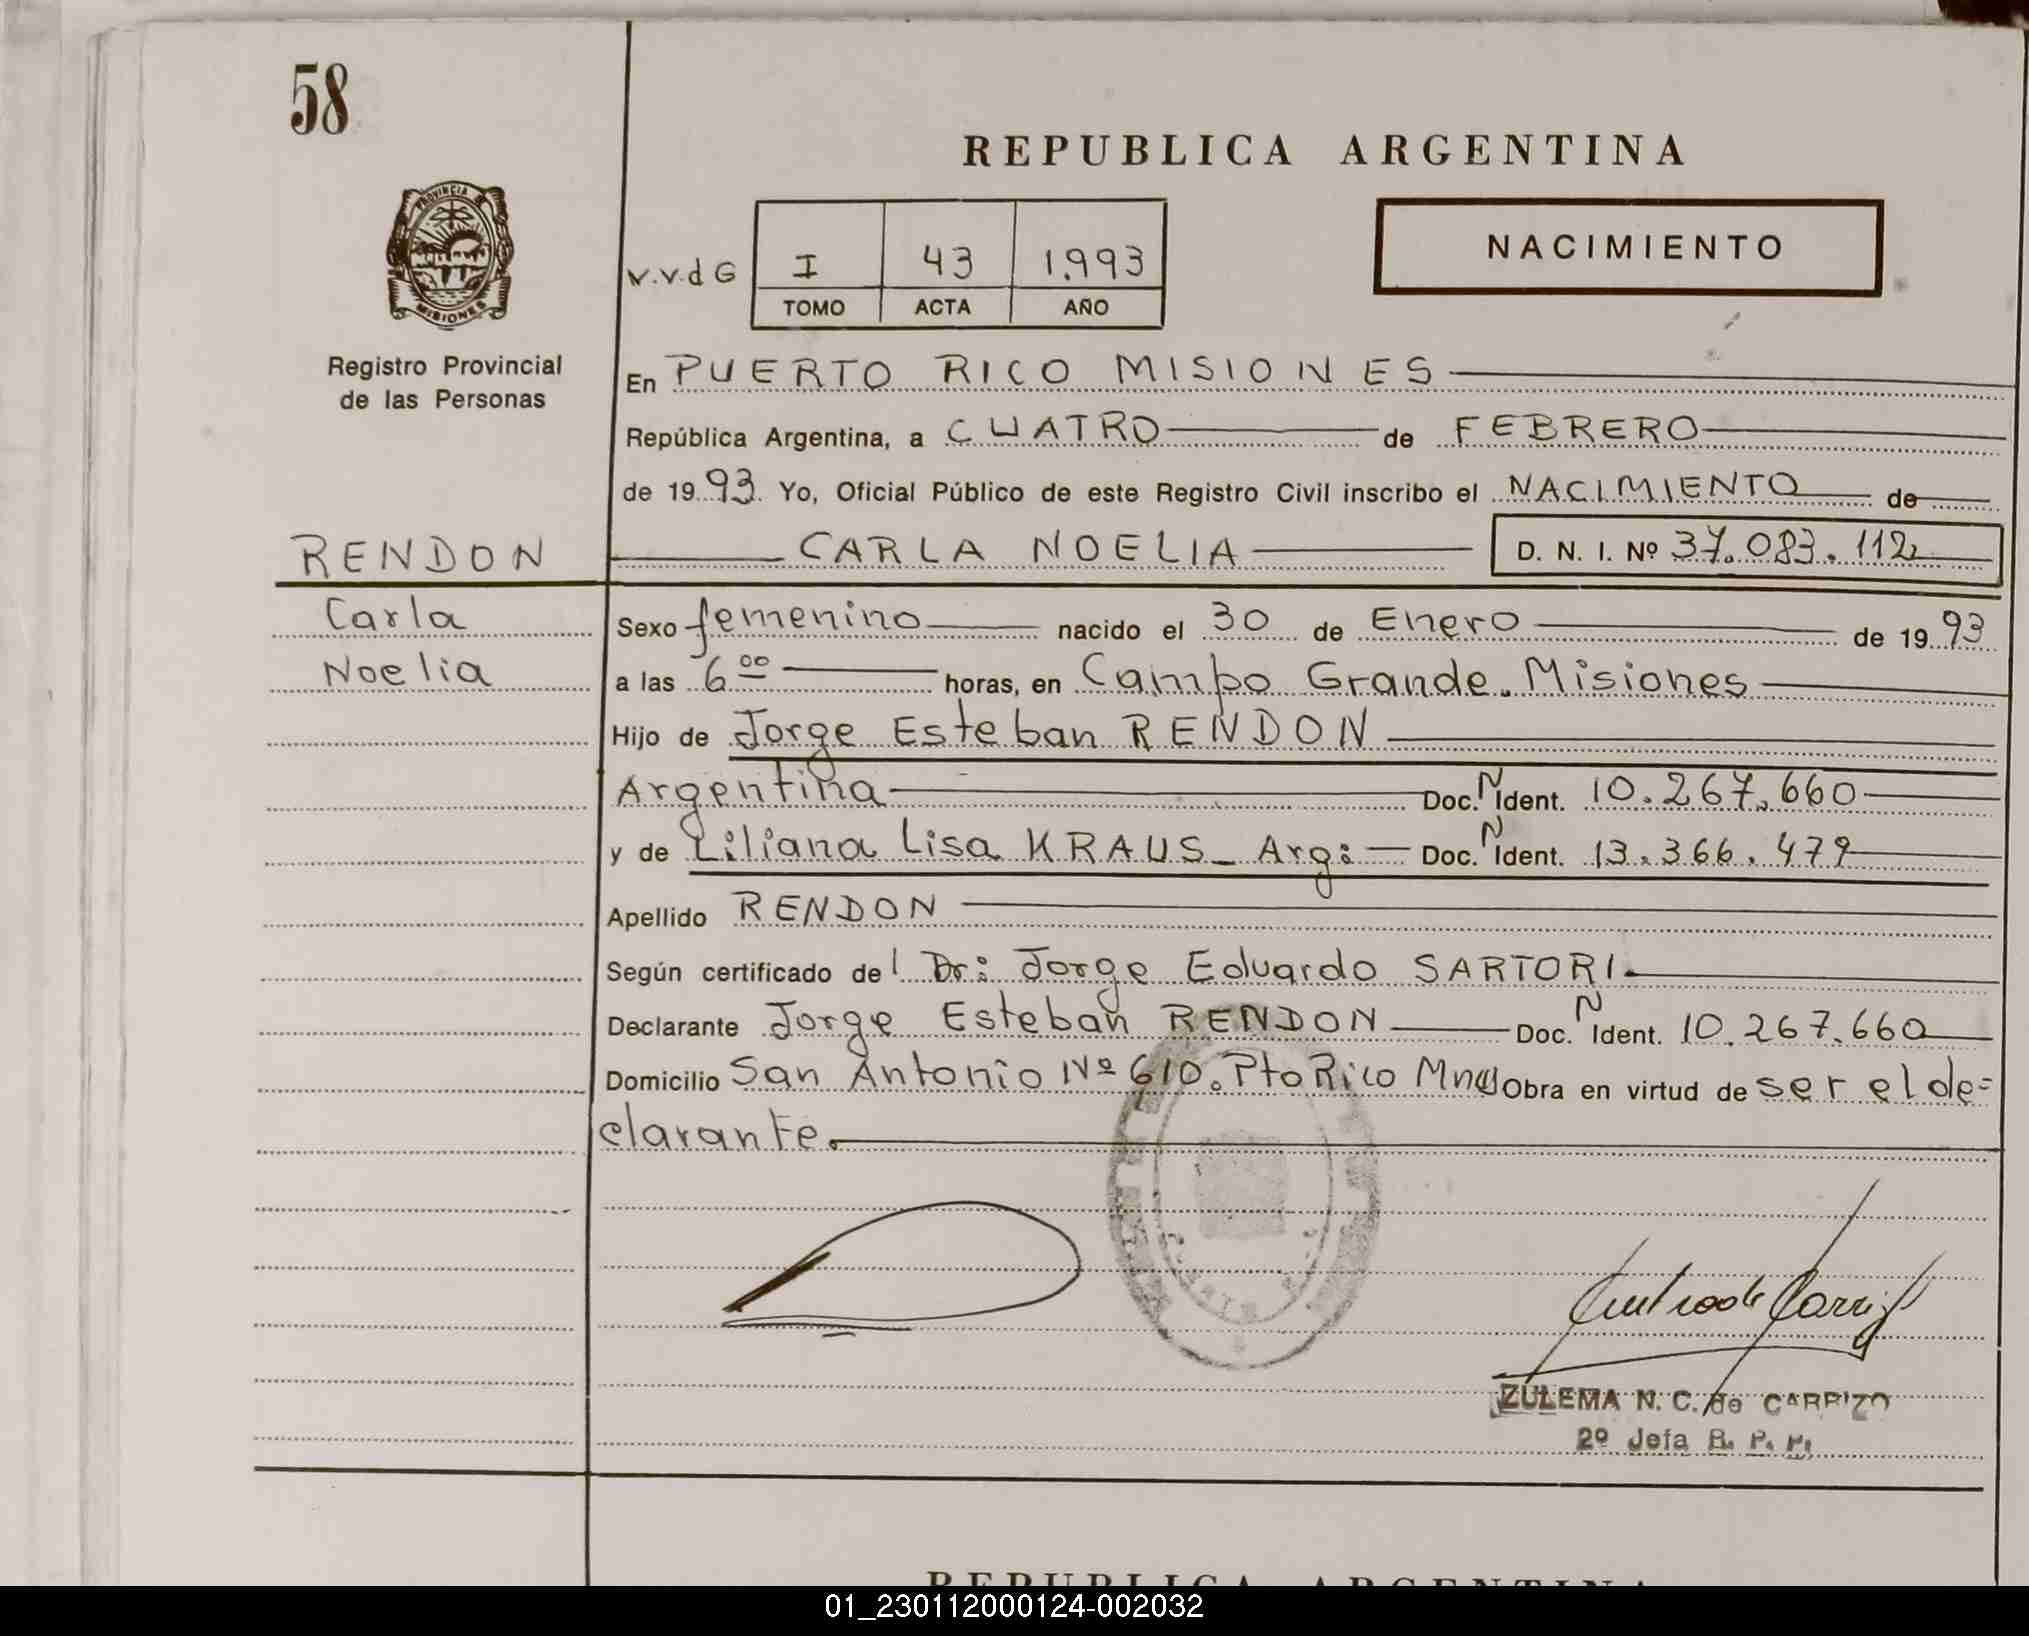 58
REPUBLICA ARGENTINA
PROVINCIA
MISIONES
Registro Provincial
de las Personas
v.v.d G
I 43 1.993
TOMO ACTA AÑO
NACIMIENTO
En PUERTO RICO MISIONES
República Argentina, a CUATRO de FEBRERO
de 19 93. Yo, Oficial Público de este Registro Civil inscribo el NACIMIENTO de
RENDON CARLA NOELIA D. N. I. Nº 37.083.112
Carla
Noelia
Sexo femenino nacido el 30 de Enero de 19 93
a las 6 00 horas, en Campo Grande. Misiones
Hijo de Jorge Esteban RENDON
Argentina Doc. N Ident. 10.267.660
y de Liliana Lisa KRAUS_ Arg: Doc. N Ident. 13.366.479
Apellido RENDON
Según certificado del Dr: Jorge Eduardo SARTORI.
Declarante Jorge Esteban RENDON Doc. N Ident. 10.267.660
Domicilio San Antonio Nº 610. Pto Rico Mnes Obra en virtud de ser el de=
clarante.
ZULEMA N. C. de CARRIZO
2º Jefa R. P. P.
REPUBLICA ARGENTINA
01_230112000124-002032